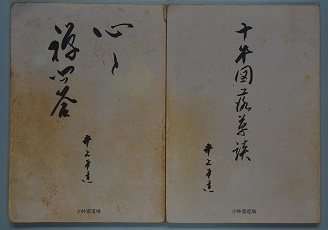 心と
禅問答
井上希道
少林窟道場
十牛図落草談
井上希道
少林窟道場